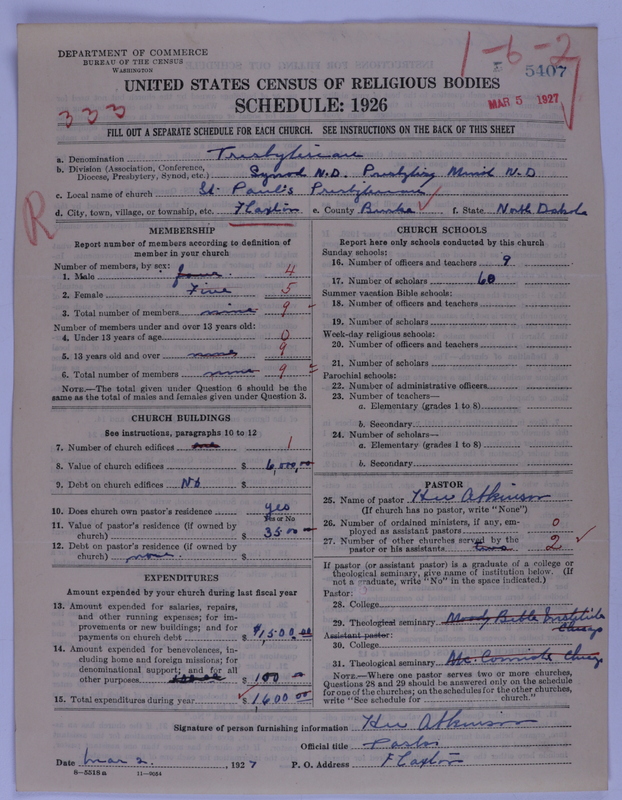 DEPARTMENT OF COMMERCE
BUREAU OF THE CENSUS
WASHINGTON
1-6-2
5407
UNITED STATES CENSUS OF RELIGIOUS BODIES
MAR 5 1927
SCHEDULE: 1926
333
FILL OUT A SEPARATE SCHEDULE FOR EACH CHURCH. SEE INSTRUCTIONS ON THE BACK OF THIS SHEET
a. Denomination Presbyterian
b. Division (Association, Conference, Diocese, Presbytery, Synod, etc.) Synod N.D. Presbytery Minot N-D
c. Local name of church St. Paul's Presbyterian
d. City, town, village, or township, etc. Flaxton e. County Burke f. State North Dakota
R
MEMBERSHIP
Report number of members according to definition of member in your church
Number of members, by sex:
1. Male four 4
2. Female Five 5
3. Total number of members nine 9
Number of members under and over 13 years old:
4. Under 13 years of age 0
5. 13 years old and over nine 9
6. Total number of members nine 9
NOTE.—The total given under Question 6 should be the same as the total of males and females given under Question 3.
CHURCH BUILDINGS
See instructions, paragraphs 10 to 12
7. Number of church edifices one 1
8. Value of church edifices $ 6,000.00
9. Debt on church edifices No $
10. Does church own pastor's residence yes
Yes or No
11. Value of pastor's residence (if owned by church) $ 3500
12. Debt on pastor's residence (if owned by church) none $
EXPENDITURES
Amount expended by your church during last fiscal year
13. Amount expended for salaries, repairs, and other running expenses; for improvements or new buildings; and for payments on church debt $ $1500.00
14. Amount expended for benevolences, including home and foreign missions; for denominational support; and for all other purposes $ 100
15. Total expenditures during year $ 1600 00
CHURCH SCHOOLS
Report here only schools conducted by this church
Sunday schools:
16. Number of officers and teachers 9
17. Number of scholars 60
Summer vacation Bible schools:
18. Number of officers and teachers
19. Number of scholars
Week-day religious schools:
20. Number of officers and teachers
21. Number of scholars
Parochial schools:
22. Number of administrative officers
23. Number of teachers—
a. Elementary (grades 1 to 8)
b. Secondary
24. Number of scholars—
a. Elementary (grades 1 to 8)
b. Secondary
PASTOR
25. Name of pastor Atkinson
(If church has no pastor, write "None")
26. Number of ordained ministers, if any, employed as assistant pastors 0
27. Number of other churches served by the pastor or his assistants two 2
If pastor (or assistant pastor) is a graduate of a college or theological seminary, give name of institution below. (If not a graduate, write "No" in the space indicated.)
Pastor:
28. College
29. Theological seminary Moody Bible Institute Chicago
Assistant pastor:
30. College
31. Theological seminary Mc Cormick Chicago
NOTE.—Where one pastor serves two or more churches, Questions 28 and 29 should be answered only on the schedule for one of the churches; on the schedules for the other churches, write "See schedule for church."
Signature of person furnishing information Atkinson
Official title Pastor
Date Mar 2, 1927 P. O. Address Flaxton
8—5518 a 11—9054